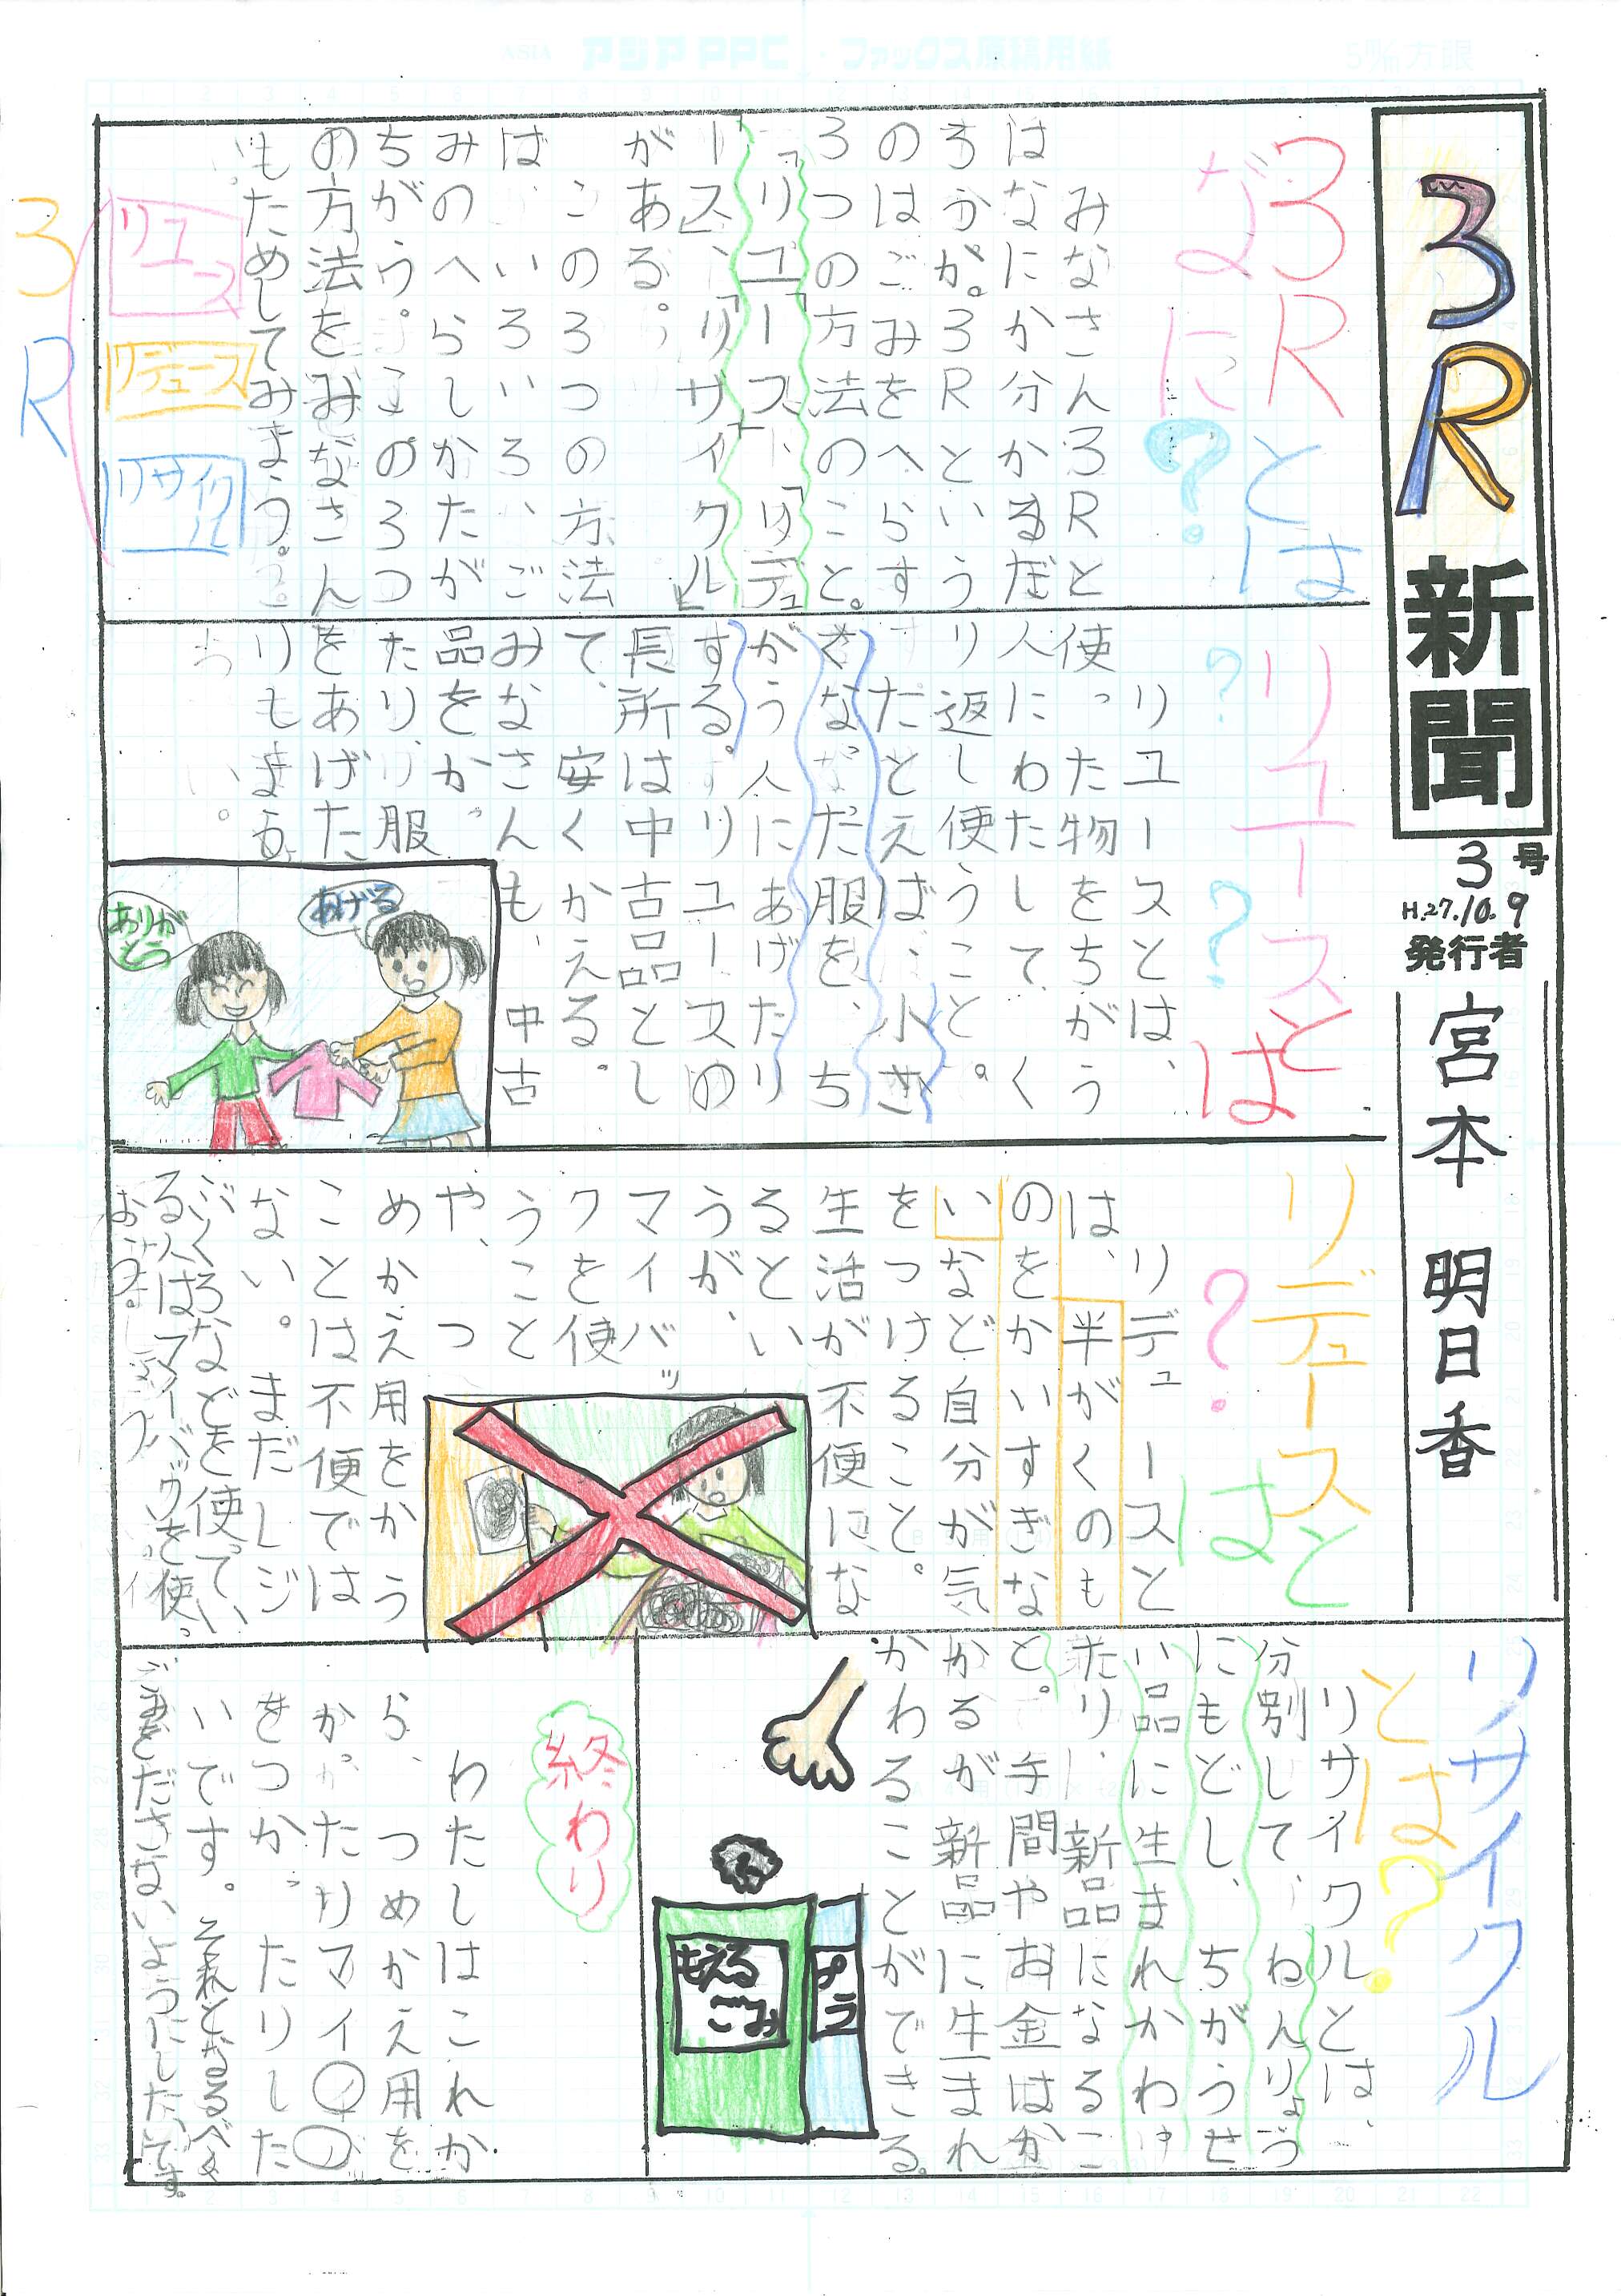 アジア PPC・ファックス原稿用紙
5㎜方眼
3R新聞
3号
H.27.10.9
発行者
宮本 明日香
3Rとは
なに?
みなさん3Rと
はなにか分かるだ
ろうか。3Rという
のはごみをへらす
3つの方法のこと。
「リユース」「リデュ
ース」、「リサイクル」
がある。
この3つの方法
は いろいろ、ご
みのへらしかたが
ちがう。この3つ
の方法をみなさん
もためしてみまう。
3R
リユース
リデュース
リサイクル
リユースとは
??
リユースとは、
使った物をちがう
人にわたして く
り返し使うこと。
たとえば、小さ
くなった服を、ち
がう人にあげたり
する。リユースの
長所は中古品とし
て、安くかえる。
みなさんも、中古
品をかっ
たり、服
をあげた
りもまも
あげる
ありがとう
リデュースとは
?
リデュースと
は、半がくのも
のをかいすぎな
いなど自分が気
をつけること。
生活が不便にな
るとい
うが、
マイバッ
クを使
うこと
や、つ
めかえ用をかう
ことは不便では
ない。まだレジ
ぶくろなどを使ってい
る人はマイバックを使
おう。
リサイクル
とは?
リサイクルとは、
分別して、ねんりょう
にもどし、ちがうせ
い品に生まれかわっ
たり、新品になるこ
と。手間やお金はか
かるが新品に生まれ
かわることができる。
もえるごみ
プラ
終わり
わたしはこれか
ら、つめかえ用を
かったりマイ
をつかったりした
いです。それとなるべく
ごみをださないようにしたいです。